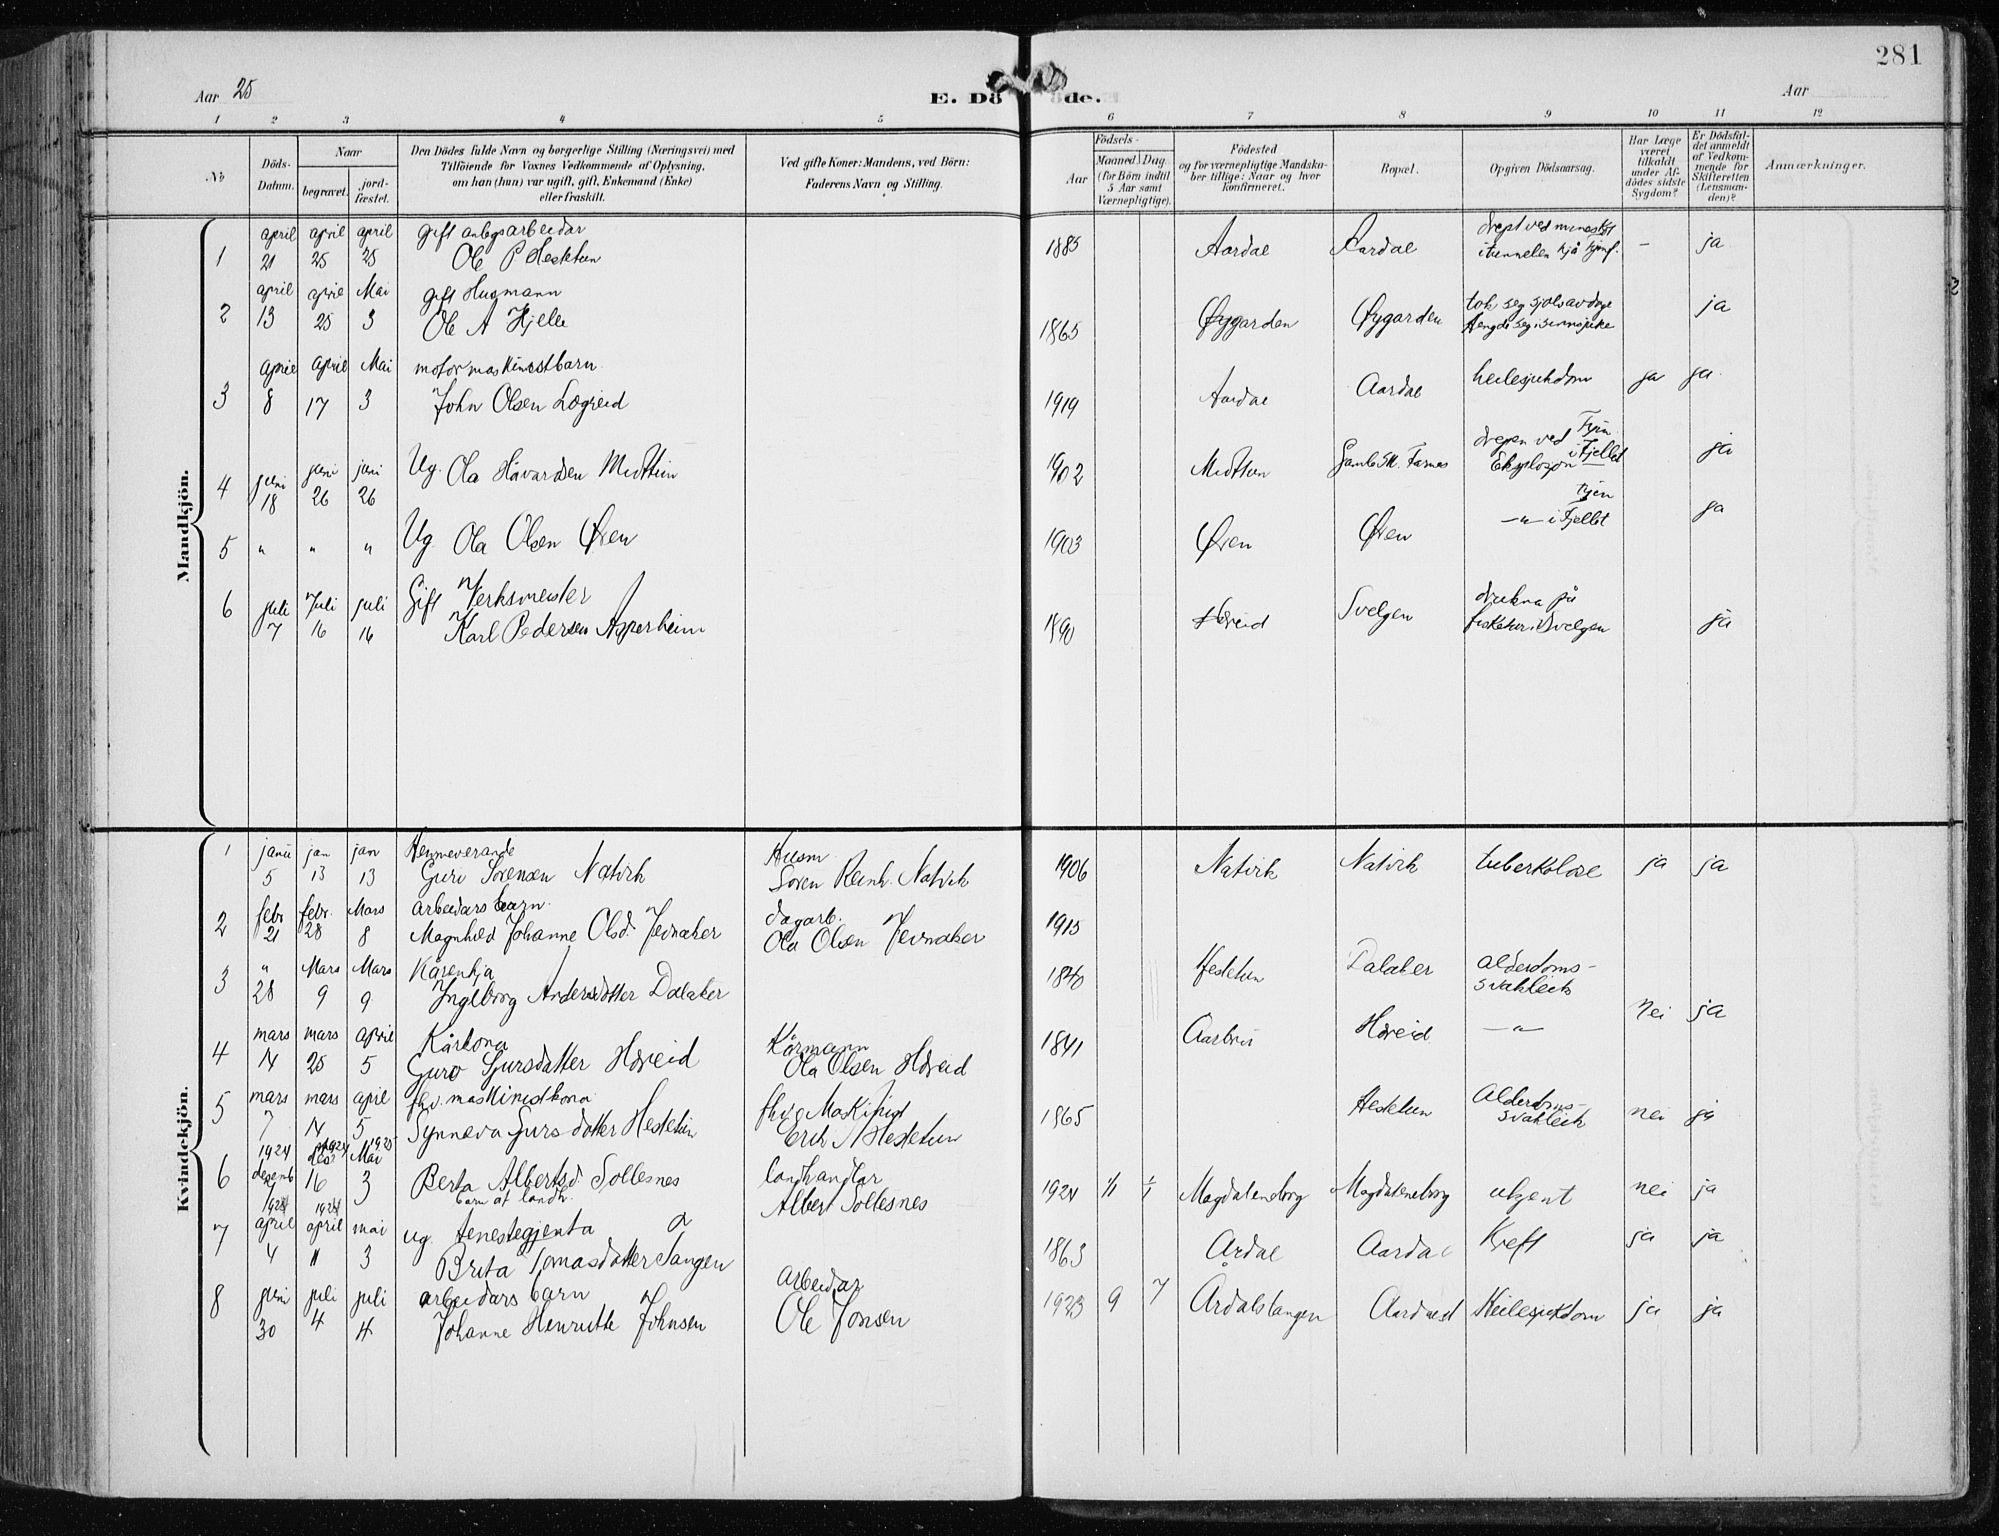 281
Aar 25
E. Döde.
Aar
1 2 3 4 5 6 7 8 9 10 11 12
No
Döds-Datum.
Naar
begravet.
jordfæstet.
Den Dödes fulde Navn og borgerlige Stilling (Næringsvei) med
Tilföiende for Voxnes Vedkommende af Oplysning,
om han (hun) var ugift, gift, Enkemand (Enke)
eller fraskilt.
Ved gifte Koner: Mandens, ved Börn:
Faderens Navn og Stilling.
Aar
Födsels-
Maaned. Dag.
(for Börn indtil
5 Aar samt
Værnepligtige).
Födested
og for værnepligtige Mandska-
ber tillige: Naar og hvor
konfirmeret.
Bopæl.
Opgiven Dödsaarsag.
Har Læge
været
tilkaldt
under Af-
dödes sidste
Sygdom?
Er Dödsfal-
det anmeldt
af Vedkom-
mende for
Skifteretten
(Lensman-
den)?
Anmærkninger.
Mandkjön.
1 april 21 april 25 april 25 gift anlegsarbeidar
Ole P Hestetun 1885 Aardal Aardal drept ved
i tunnelen hjå ja
2 april 13 april 25 Mai 3 gift Husmann
Ole A Hjelle 1865 Øygarden Øygarden tok seg sjølv av dage
hengde seg i ja
3 april 8 april 17 Mai 3 motormaskinistbarn
John Olsen Lægreid 1919 Aardal Aardal heilesjukdom ja ja
4 juni 18 juni 26 juni 26 Ug. Ola Håvardsen Midttun 1902 Midttun Farnes drepen ved
Eksplosjon Tyin i Fjellet ja
5 " " " Ug. Ola Olsen Øren 1903 Øren Øren -"- i Fjellet Tyin ja
6 juli 7 Juli 16 juli 16 Gift Verksmeister
Karl Pedersen Asperheim 1890 Hæreid Svelgen drukna på
fisketur i Svelgen ja
Kvindekjön.
1 janu 5 jan 13 jan 13 Heimeverande
Guri Sørensen Natvik Husm.
Søren Reinh. Natvik 1906 Natvik Natvik tuberkolose ja ja
2 febr 21 febr. 28 Mars 8 arbeidars barn.
Magnhild Johanne Olsd. Jevnaker dagarb.
Ola Olsen Jevnaker 1915
3 " 28 Mars 9 Mars 9 Kårenkja
Ingeborg Andersdotter Dalaker 1840 Hestetun Dalaker alderdoms-
svakleik
nei ja
4 mars 14 mars 25 april 5 Kårkona
Guro Sjursdatter Hæreid Kårmann
Ola Olsen Hæreid 1841 Hæreid -"-
5 mars 7 mars 14 april 5 fhv. maskinistkona
Synneva Sjursdotter Hestetun fhv. Maskinist
Erik Hestetun 1865 Hestetun Alderdoms-
svakleik nei ja
6 1924 desemb 1 1924 des 16 1925 Mai 3 Berta Albertsd. Sollesnes
barn af landh. landhandlar
Albert Sollesnes 1924 Magdaleneborg Magdaleneborg ukjent nei ja
7 april 4 april 11 mai 3 ug. tenestegjenta
Brita Tomasdotter Tangen 1863 Årdal Aardal Kreft ja ja
8 juni 30 juli 4 juli 4 arbeidars barn
Johanne Henriette Johnsen Arbeidar
Ole Jonsen 1923 9 7 Årdalstangen Heilesjukdom ja ja